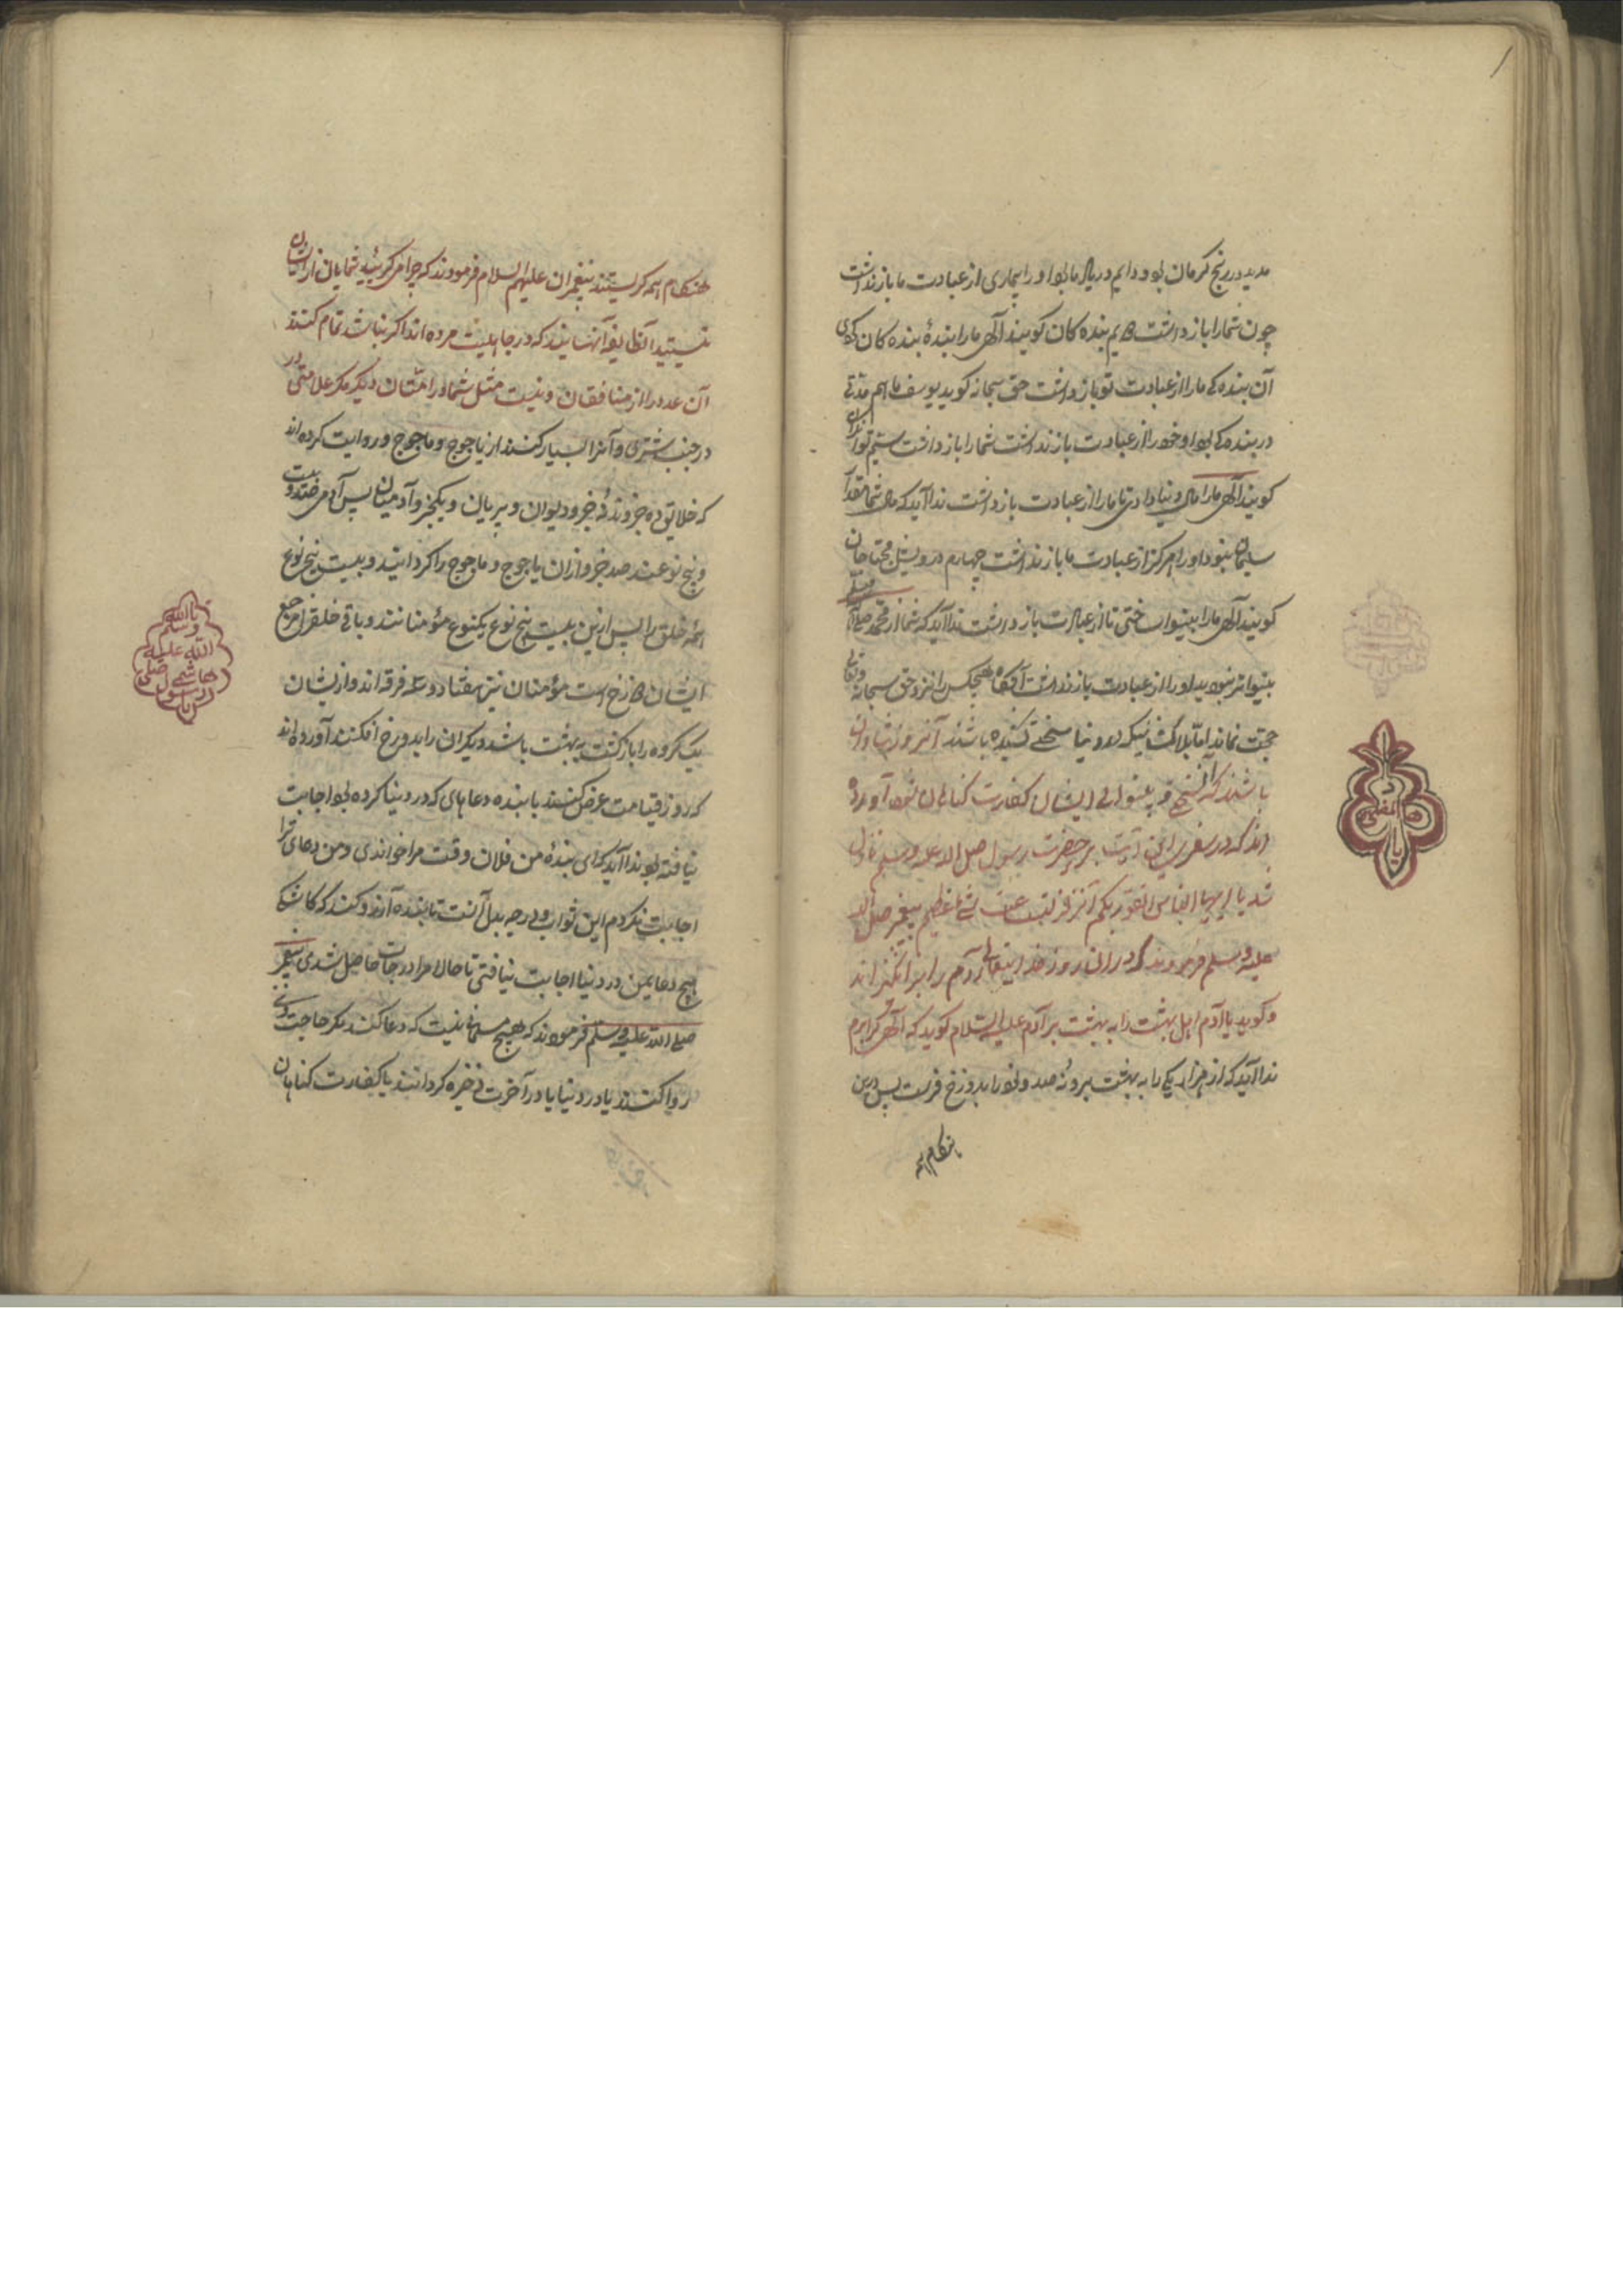 مدید در رنج کرمان بود و دایم در یاد ما بود او را بیماری از عبادت ما باز نداشت
چون شما را باز داشت سیم بنده کان کویند الهی ما را بندهٔ بنده کان کردی
آن بنده کی ما را از عبادت تو باز داشت حق سبحانه کوید یوسف ما هم مدتی
در بنده کی بود او خود را از عبادت باز نداشت شما را باز داشت
کویند الهی ما را مال دنیا دادی تا ما را از عبادت باز داشت ندا آید که مال شما
سلیمان نبود او را هرکز از عبادت ما باز نداشت چهارم درویشان محتاجان
کویند الهی ما را بینوا ساختی تا از عبادت باز داشت ندا آید که شما از محمد
بینواتر نبودید او را از عبادت باز نداشت آنکاه هیچکس را نزد حق سبحانه وتعالی
حجت نماند اما بلا کشانیکه در دنیا سختی کشیده باشند آنروز شادان
باشند که آن سختی و بینوائی ایشان کفارت کناهان شود آورده
اند که در سفری این آیت بر حضرت رسول صلی الله علیه وسلم نازل
شد یا ایها الناس اتقوا ربکم ان زلزلة الساعة شئ عظیم پیغمبر صلی الله
علیه وسلم فرمودند که در آن روز خدایتعالی آدم را برانکیزاند
و کوید یا آدم اهل بهشت را به بهشت بر آدم علیه السلام کوید که الهی کرا برم
ندا آید که از هزار یکی را به بهشت برو نه صد و نود را بدوزخ فرست پس درین
هنکام همه
یا مصطفی
هنکام همه کریستند پیغمبران علیهم السلام فرمودند که چرا می کریید شمایان از ایشان
نیستید آن طایفه آنهایند که در جاهلیت مرده اند اکر نباشد تمام کنند
آن عدد را از منافقان و نیست مثل شما در امتان دیکر مکر علامتی در
در جنب شتری و آنرا بسیار کنند از یاجوج و ماجوج و روایت کرده اند
که خلایق ده جزوند نه جزو دیوان و پریان و یکجزو آدمیان پس آدمی صد و بیست
و پنج نوعند صد جزو از ان یاجوج و ماجوج را کردانید و بیست پنج نوع
همه خلق را پس ازین بیست پنج نوع یکنوع مؤمنانند و باقی خلق را مرجع
ایشان دوزخ است مؤمنان نیز هفتاد و سه فرقه اند و از یشان
یک کروه را بازکشت به بهشت باشد دیکران را بدوزخ افکنند آورده اند
که روز قیامت عرض کنند با بنده دعاهای که در دنیا کرده بود اجابت
نیافته بود ندا آید که ای بندهٔ من فلان وقت مرا خواندی و من دعای ترا
اجابت نکردم این ثواب و درجه بدل آنست تا بنده آرزو کند که کاشکی
هیچ دعای من در دنیا اجابت نیافتی تا حالا مرا درجات حاصل شدی پیغمبر
صلی الله علیه وسلم فرمودند که هیچ مسلمانی نیست که دعا کند مکر حاجت وی
روا کنند یا در دنیا یا در آخرت ذخیره کردانند یا کفارت کناهان
یا الله
وسلم
الله علیه
هاشمی صلی
یا رسول